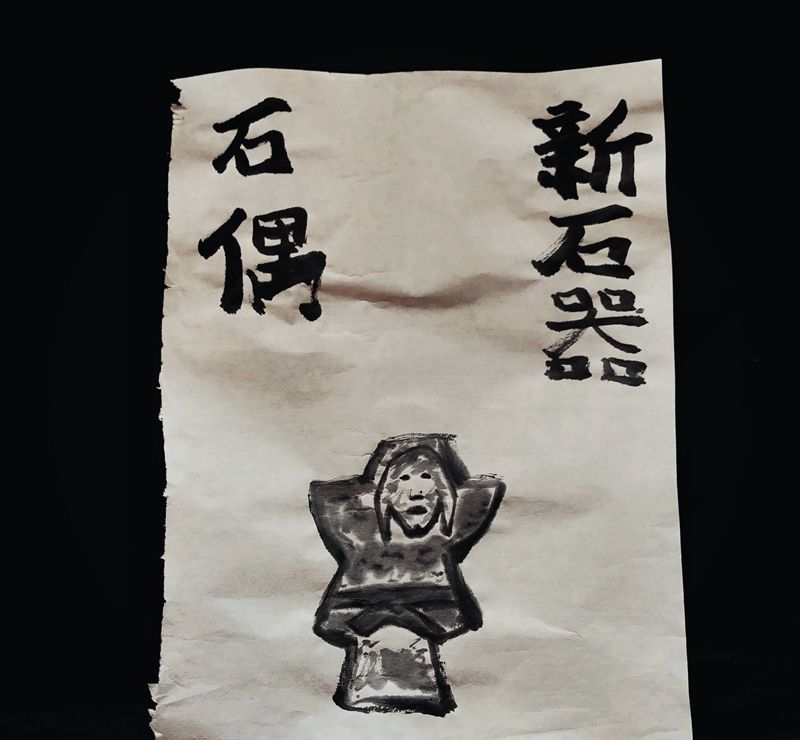 新石器
石偶